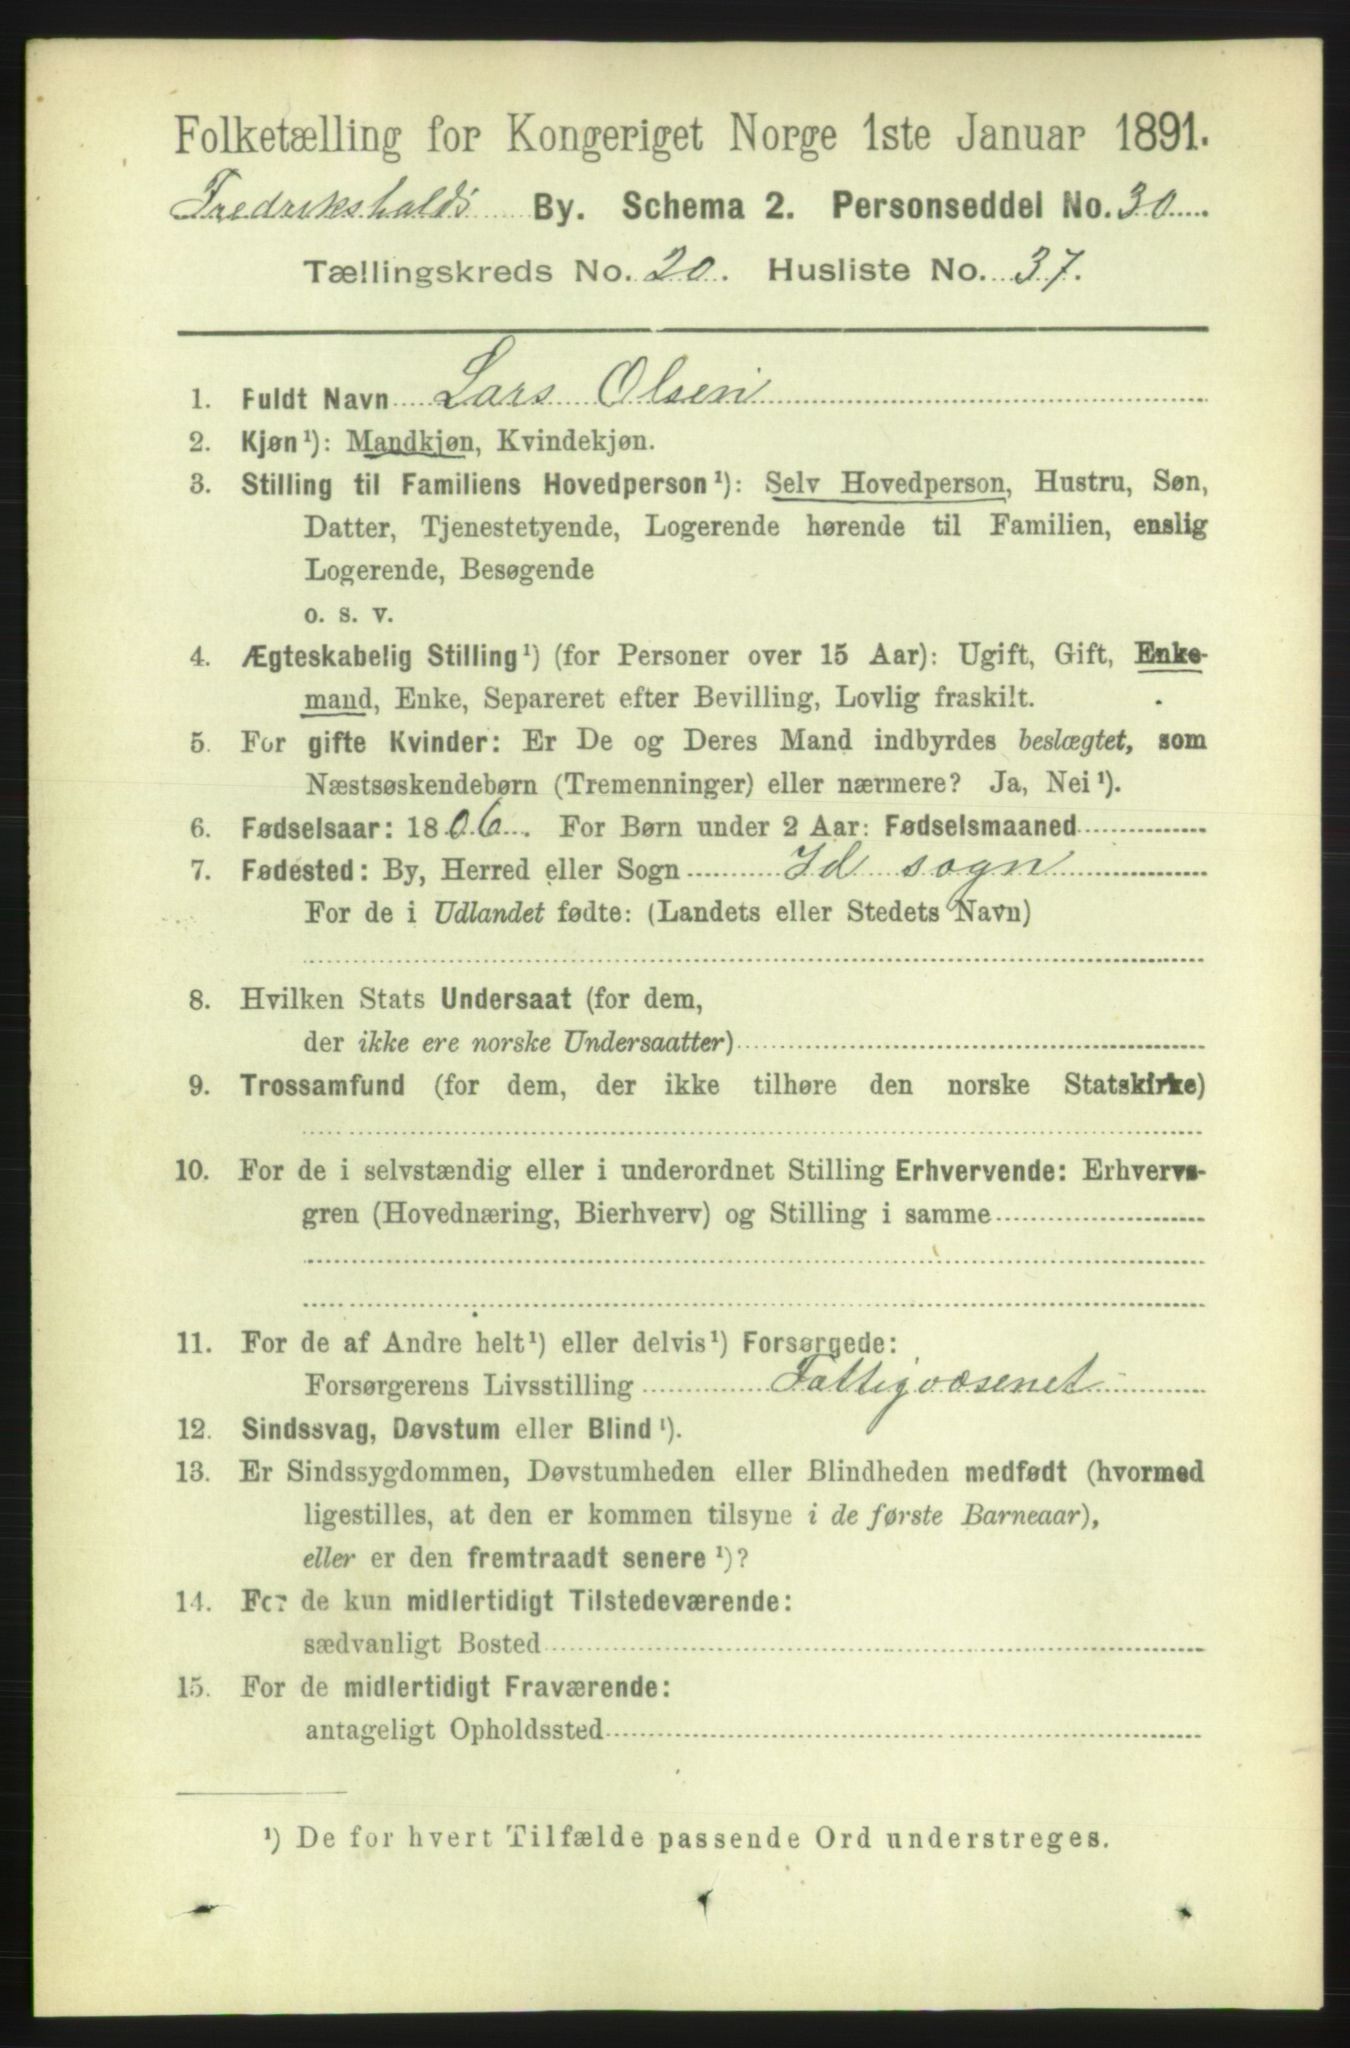 Folketælling for Kongeriget Norge 1ste Januar 1891.
Fredrikshalds By. Schema 2. Personseddel No. 30
Tællingskreds No. 20. Husliste No. 37.
1. Fuldt Navn Lars Olsen
2. Kjøn¹): Mandkjøn, Kvindekjøn.
3. Stilling til Familiens Hovedperson¹): Selv Hovedperson, Hustru, Søn,
Datter, Tjenestetyende, Logerende hørende til Familien, enslig
Logerende, Besøgende
o. s. v.
4. Ægteskabelig Stilling¹) (for Personer over 15 Aar): Ugift, Gift, Enke-
mand, Enke, Separeret efter Bevilling, Lovlig fraskilt.
5. For gifte Kvinder: Er De og Deres Mand indbyrdes beslægtet, som
Næstsøskendebørn (Tremenninger) eller nærmere? Ja, Nei¹).
6. Fødselsaar: 1806. For Børn under 2 Aar: Fødselsmaaned
7. Fødested: By, Herred eller Sogn Id sogn
For de i Udlandet fødte: (Landets eller Stedets Navn)
8. Hvilken Stats Undersaat (for dem,
der ikke ere norske Undersaatter)
9. Trossamfund (for dem, der ikke tilhøre den norske Statskirke)
10. For de i selvstændig eller i underordnet Stilling Erhvervende: Erhvervs-
gren (Hovednæring, Bierhverv) og Stilling i samme
11. For de af Andre helt¹) eller delvis¹) Forsørgede:
Forsørgerens Livsstilling Fattigvæsenet
12. Sindssvag, Døvstum eller Blind¹).
13. Er Sindssygdommen, Døvstumheden eller Blindheden medfødt (hvormed
ligestilles, at den er kommen tilsyne i de første Barneaar),
eller er den fremtraadt senere¹)?
14. For de kun midlertidigt Tilstedeværende:
sædvanligt Bosted
15. For de midlertidigt Fraværende:
antageligt Opholdssted
¹) De for hvert Tilfælde passende Ord understreges.